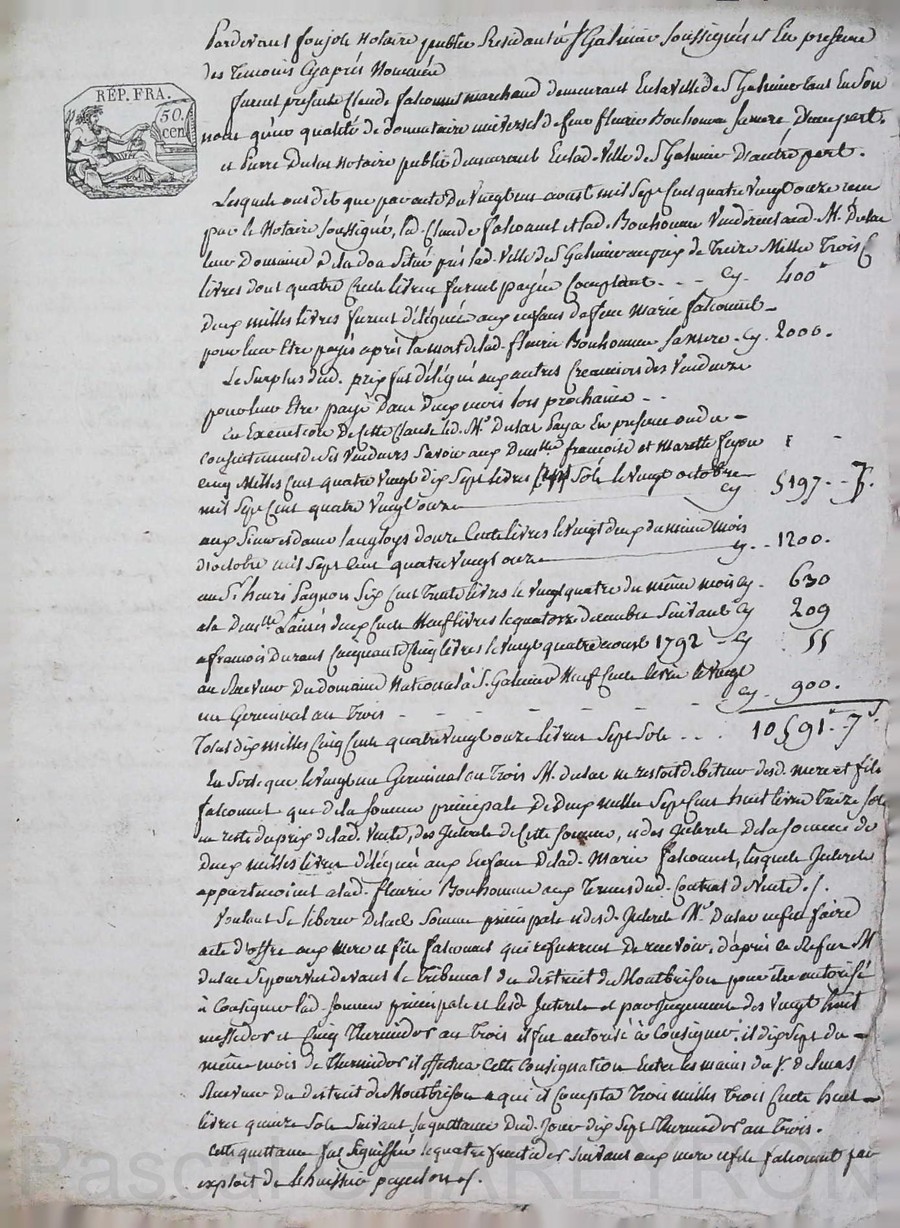 Pardevant Notaire public Residant à St Galmier Soussignés et En presence
des Temoins Cyaprés Nommés
RÉP. FRA.
50.
cen.
furent presents Claude falconnet marchand demeurant En la ville de St Galmier tant En Son
nom qu'en qualité de donnataire universel de feue fleurie Bonhomme Sa mere, D'une part.
et Pierre Dulac Notaire public demeurant En lad. Ville de St Galmier D'autre part.
Lesquels ont dit que par acte du Vingt un aoust mil Sept Cent quatre Vingt onze recu
par le Notaire Soussigné, led. Claude falconnet et lad. Bonhomme Vendirent aud. M. Dulac
leur Domaine de la doa Situé prés lad. Ville de St Galmier au prix de Treize Mille Trois C
livres dont quatre Cents livres furent payés Comptant. - - Cy. 400
Deux milles livres furent déléguées aux enfans de feue Marie falconnet
pour leur Etre payés aprés la mort de lad. fleurie Bonhomme Sa mere. Cy. 2000.
Le Surplus dud. prix fut délégué aux autres Creanciers des Vendeurs
pour leur Etre payé Dans Deux mois lors prochains - -
En Execution De Cette Clause led. Mr. Dulac Paya En presence ou du
consentement desd. Vendeurs Savoir aux Dmlles francoise et Marette
Cinq Milles Cent quatre Vingt dix Sept livres Sols le vingt octobre
mil Sept Cent quatre Vingt onze Cy 5197 - - 7s.
aux Sieur et dame Langloys douze Cents livres le Vingt deux du meme mois
d'octobre mil Sept Cent quatre Vingt onze cy. - 1200.
au Sr. henri Pagnon Six Cent Trente livres le vingt quatre du même mois cy - 630
a la Dmlle deux Cents Neuf livres le quatorze decembre Suivant Cy 209
a francois Durant Cinquante Cinq livres le Vingt quatre aoust 1792 - Cy 55
au Receveur du domaine National à St. Galmier Neuf Cents livres le vingt
un Germinal an Trois - - - - - - cy. 900.
Total dix milles Cinq Cents quatre Vingt onze livres Sept Sols - - . 10591 - 7s.
En Sorte que le vingt un Germinal an Trois M. dulac ne restoit debiteur desd. mere et fils
falconnet que de la Somme principale De Deux milles Sept Cent huit livres Treize Sols
en reste du prix de lad. Vente, des Interets de Cette Somme, et des Interets De la Somme de
Deux milles livres déléguée aux Enfans De lad. Marie falconnet, lesquels Interets
appartenoient a lad. fleurie Bonhomme aux Termes dud. Contrat de Vente.
Voulant Se liberer De lad. Somme principale et desd. Interets Mr. Dulac fit faire
acte d'offre aux mere et fils falconnet qui refuserent De recevoir. d'aprés ce Refus M
dulac Se pourvut devant le Tribunal du district de Montbrison pour être autorisé
à Consigner lad. Somme principale et lesd. Interets et par Jugements des Vingt huit
messidor et Cinq Thermidor an Trois il fut autorisé à Consigner. il dix Sept du
même mois de Thermidor il effectua Cette Consignation Entre les mains du
Receveur Du district de Montbrison a qui il Compta Trois milles Trois Cents huit
livres quinze Sols Suivant Sa quittance Dud. Jour dix Sept Thermidor an Trois.
Cette quittance fut Signiffiée le quatre fructidor Suivant aux mere et fils falconnet par
exploit de L'huissier